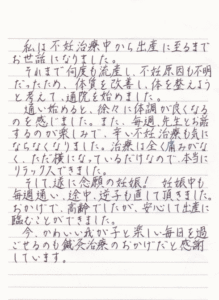 私は不妊治療中から出産に至るまで
お世話になりました。
それまで何度も流産し、不妊原因も不明
だったため、体質を改善し、体を整えよう
と考えて、通院を始めました。
通い始めると、徐々に体調が良くなる
のを感じました。また、毎週、先生とお話
するのが楽しみで、辛い不妊治療も気に
ならなくなりました。治療は全く痛みがな
く、ただ横になっているだけなので、本当に
リラックスできました。
そして、遂に念願の妊娠！妊娠中も
毎週通い、途中、逆子も直して頂きました。
おかげで、高齢でしたが、安心して出産に
臨むことができました。
今、かわいい我が子と楽しい毎日を過
ごせるのも鍼灸治療のおかげだと感謝
しています。